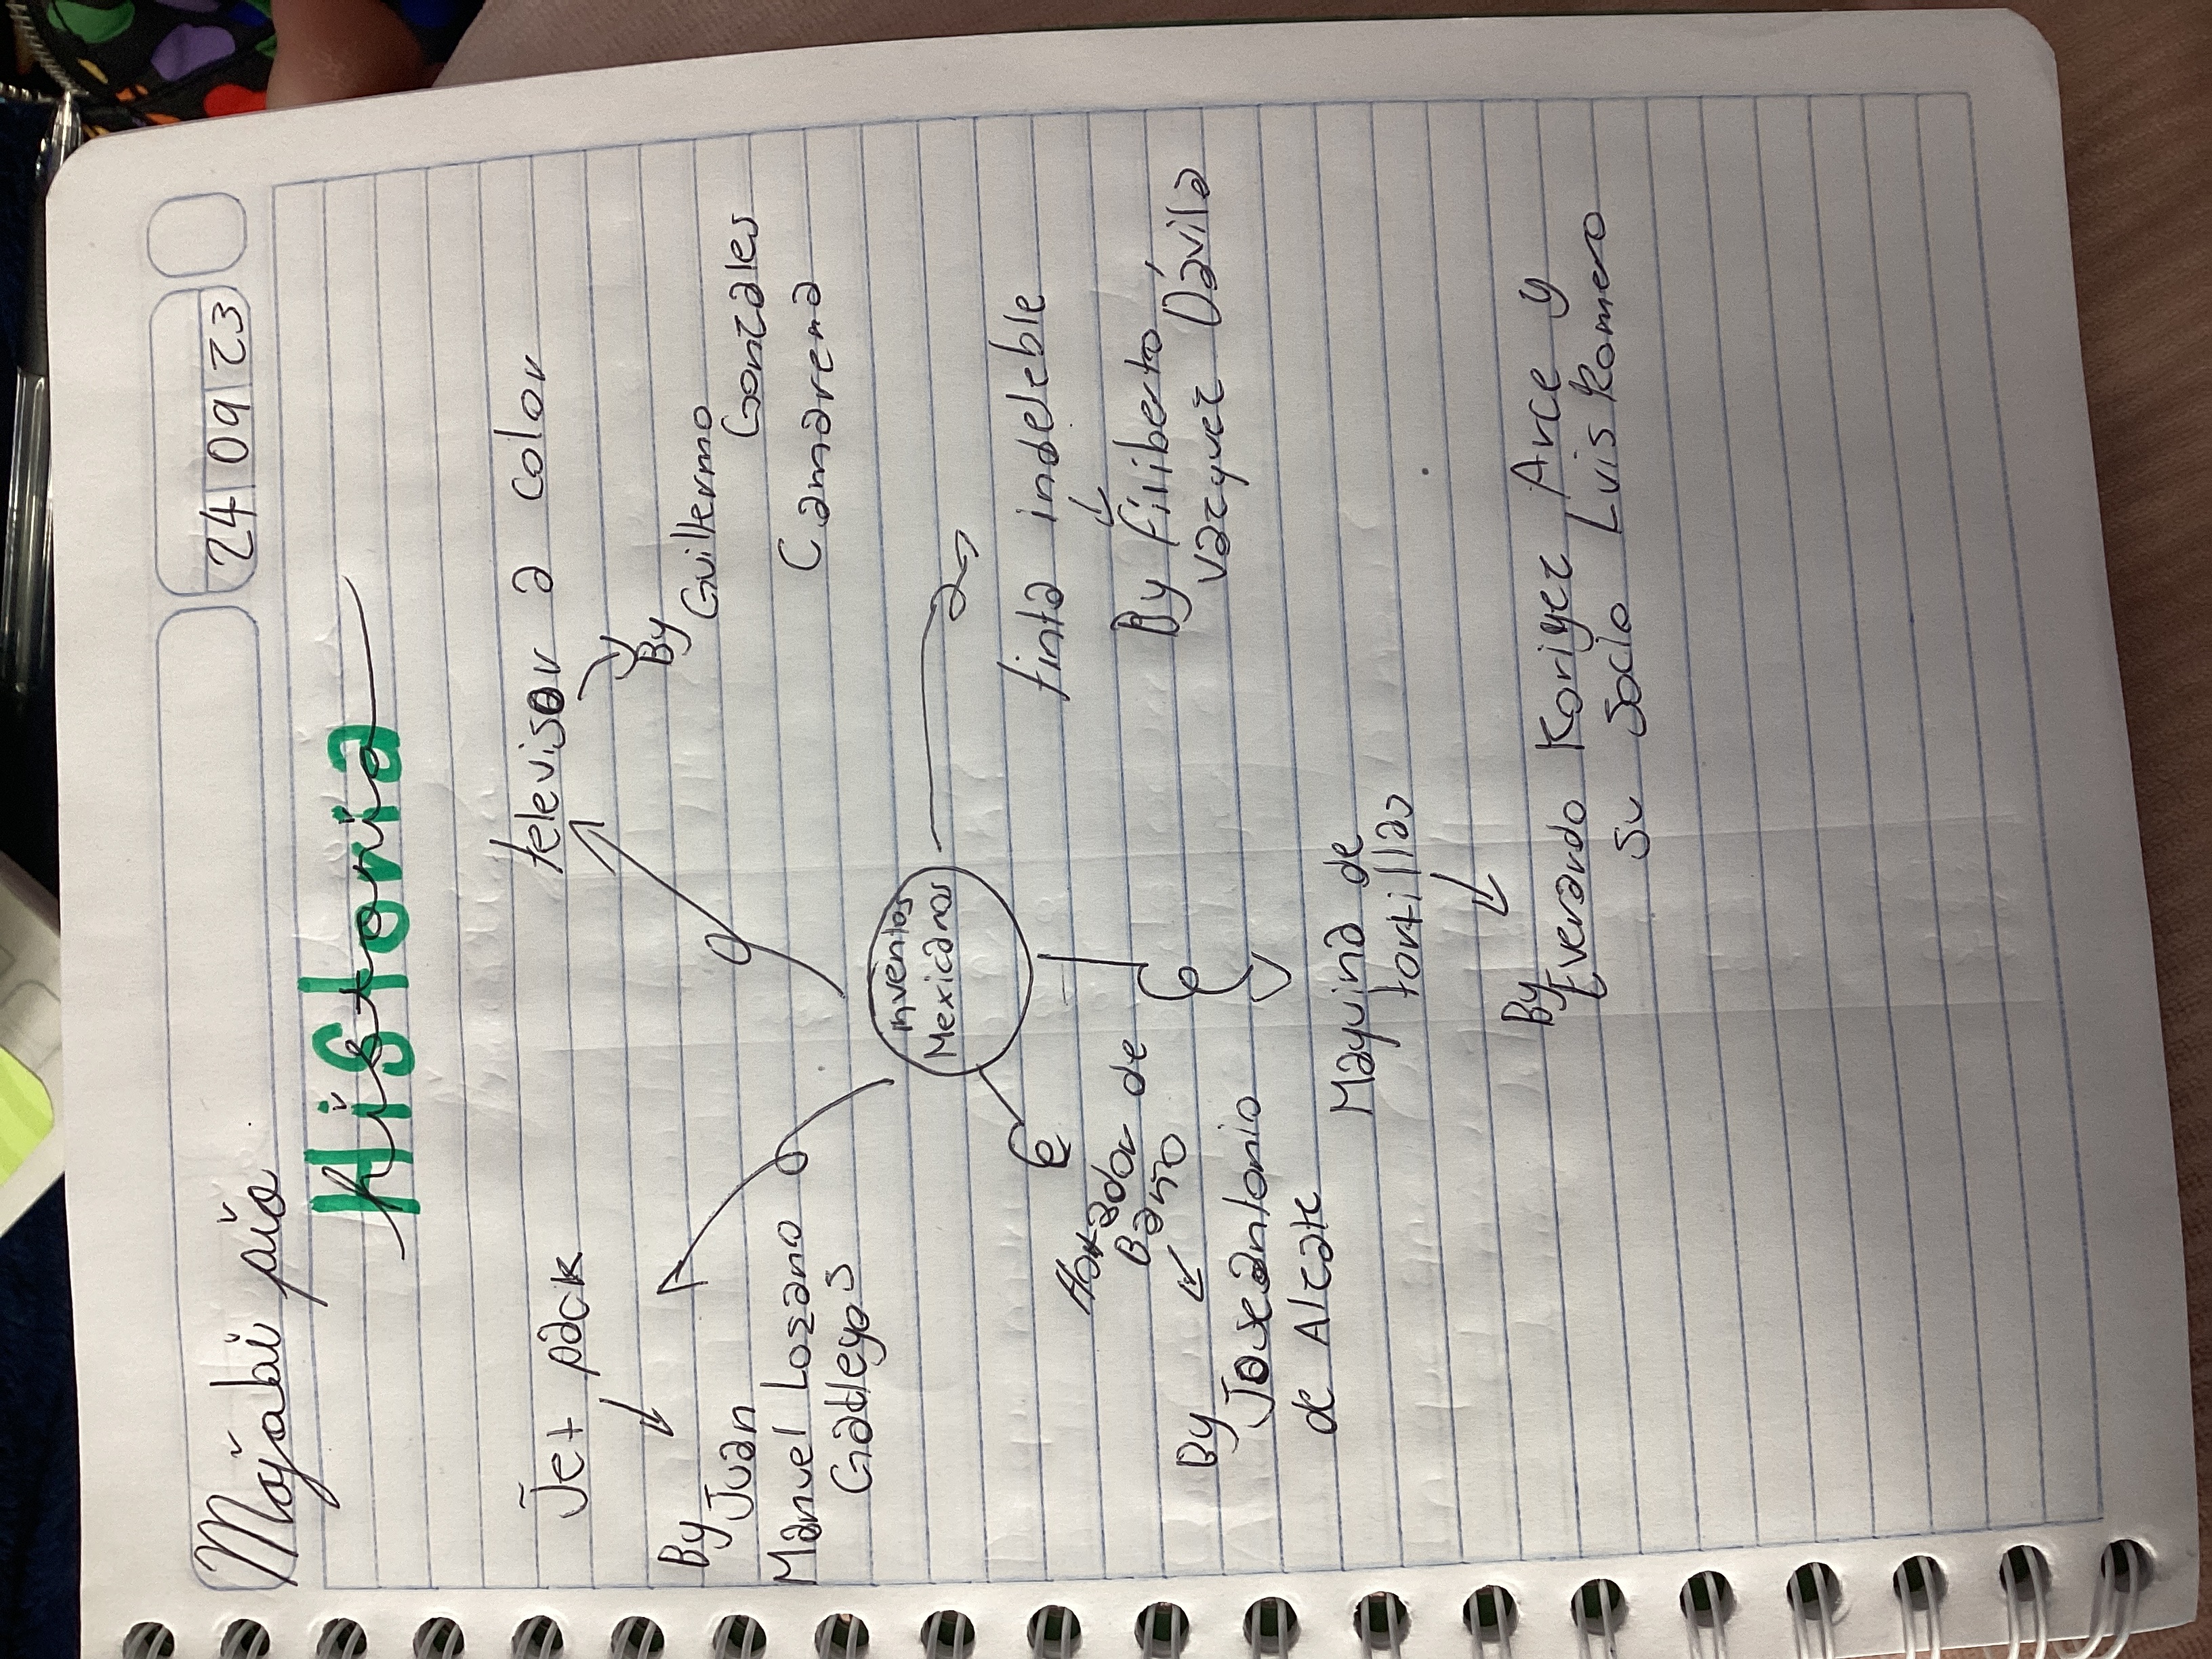 Majabi pio
24 09 23
Historia
Jet pack
By Juan
Manuel Lozano
Gallegos
televisor a color
By
Guillermo
Gonzales
Camarena
Inventos
Mexicanos
tinta indeleble
By filiberto
vazquez Dávila
de
Baño
By
Joseantonio
de Alzate
Maquina de
tortillas
By
Everardo Rorigez Arce y
su socio Luis Romero